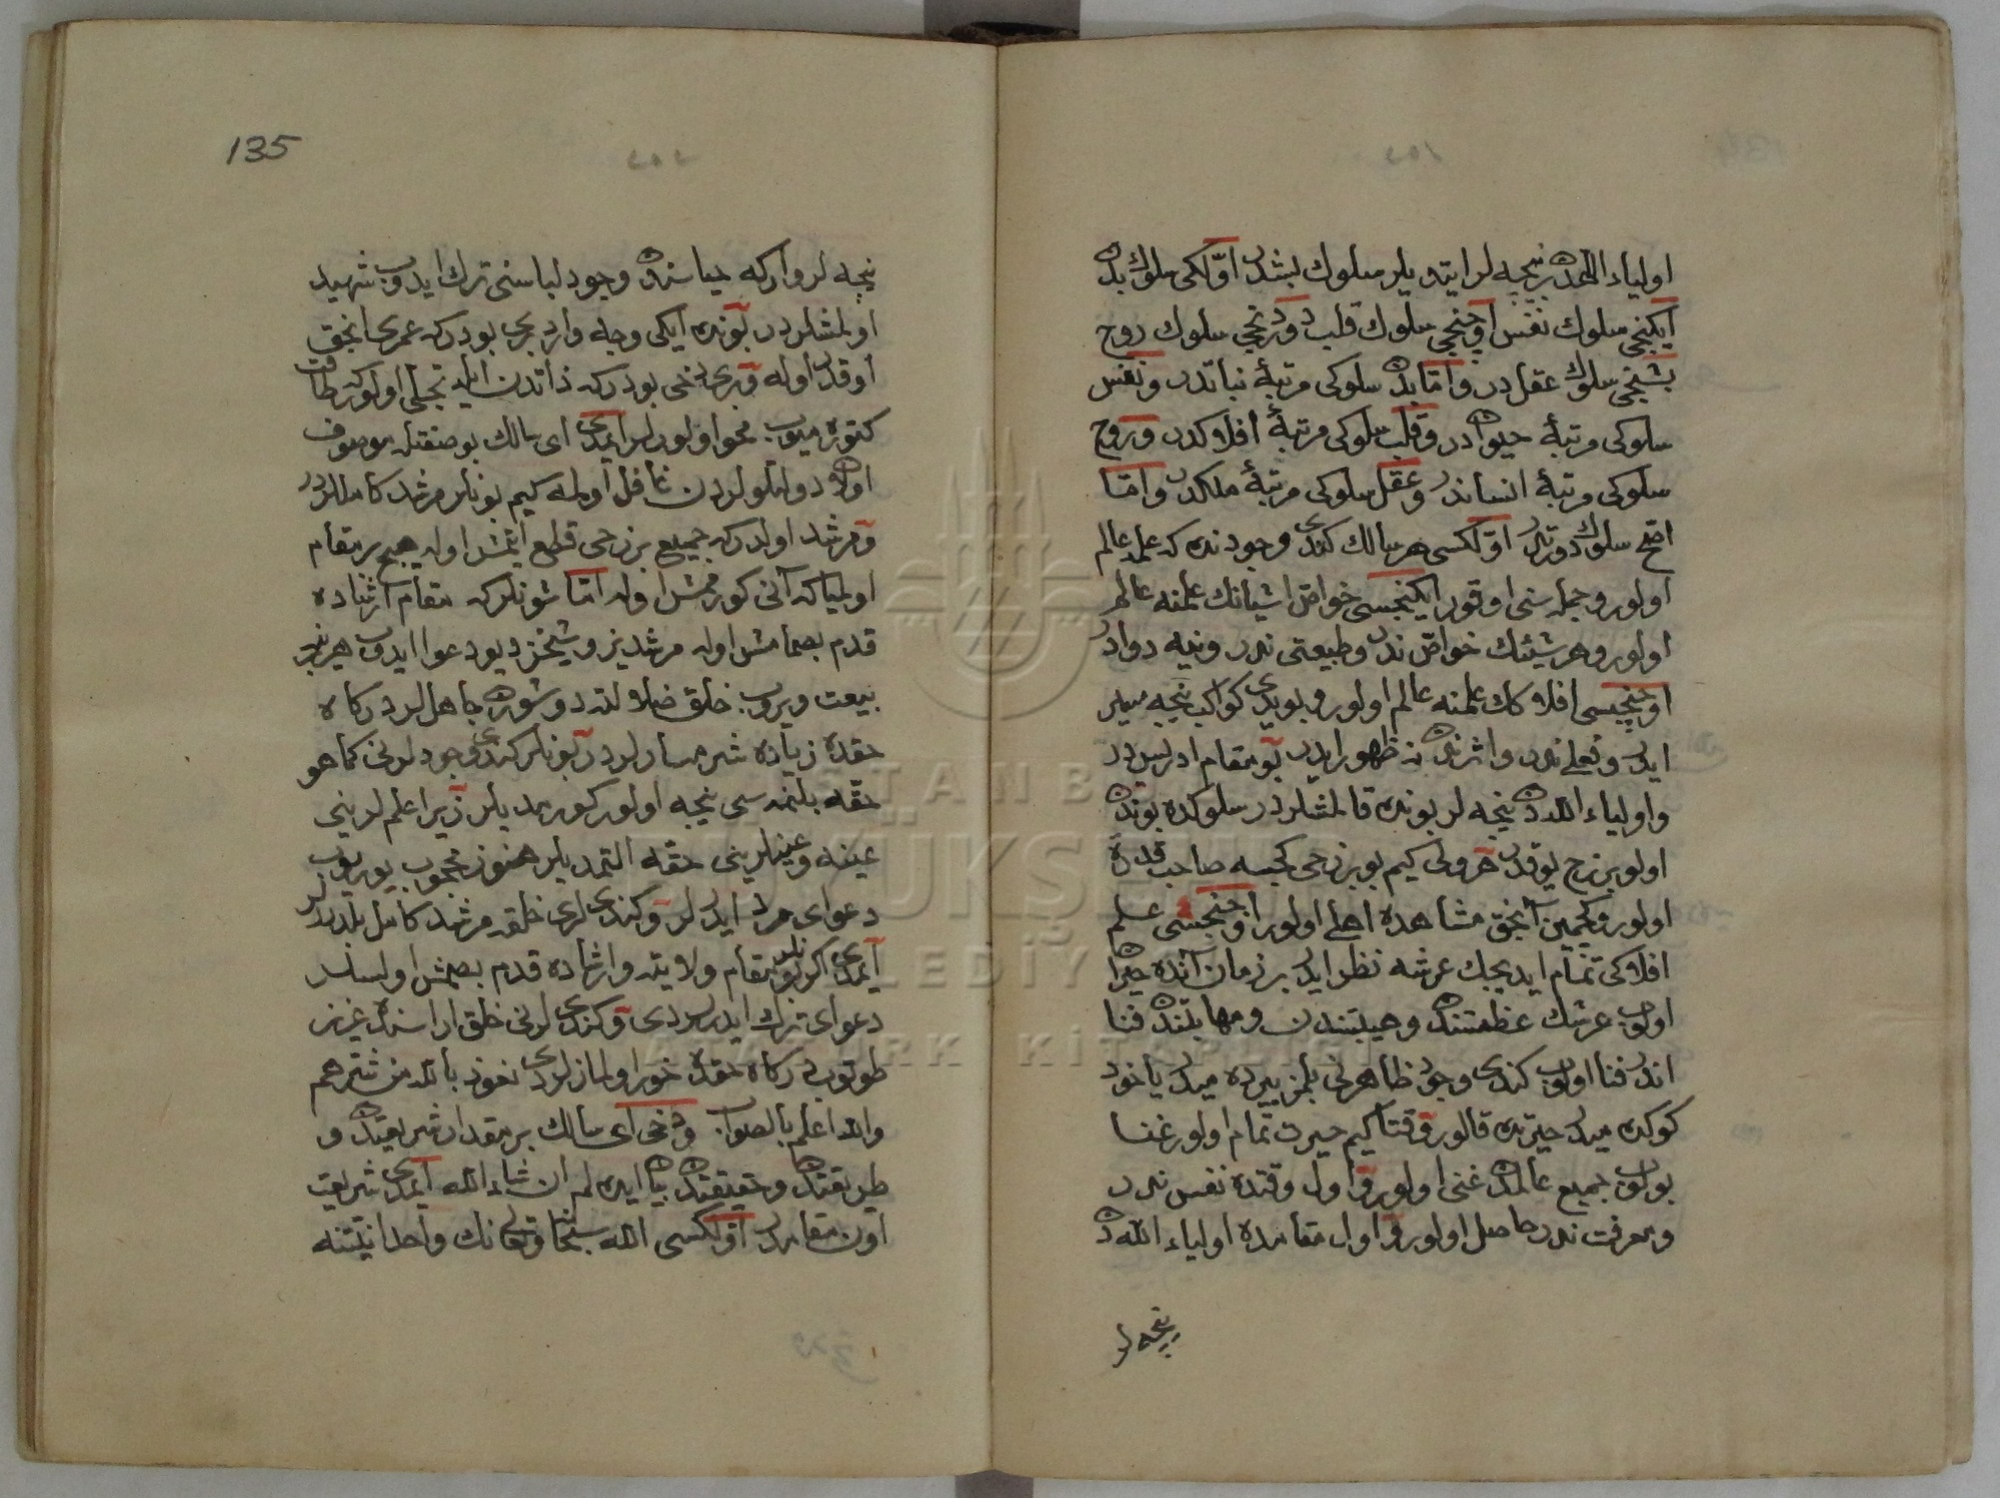 اولياء اللهدن نيجه لر ايتديلر سلوك بشدر اوّلكى سلوك بدن
ايكنجى سلوك نفس اوچنجى سلوك قلب دوردنجى سلوك روح
بشنجى سلوك عقلدر وامّا بدن سلوكى مرتبهٔ نباتدر ونفس
سلوكى مرتبهٔ حيواندر وقلب سلوكى مرتبهٔ افلاكدر وروح
سلوكى مرتبهٔ انساندر وعقل سلوكى مرتبهٔ ملكدر وامّا
اصح سلوك دورتدر اوّلكسى هر سالك كندى وجودندن كه علمله عالم
اولور وجمله سنى اوقور ايكنجسى خواصّ اشيانك علمنه عالم
اولور وهر شيئك خواصّ ندر وطبيعتى ندر ونيه دوادر
اوچنجيسى افلاكك علمنه عالم اولور وبو يدى كواكب نيجه سير
ايدر وفعلى ندر واثرندن نه ظهور ايدر بو مقام ادريسدر
واولياء اللهدن نيجه لر بوندن قالمشلردر سلوكده بوندن
اولو برزخ يوقدر هر ولى كيم بو برزخى كچسه صاحب قدرة
اولور وكچمين آنجق مشاهده اهلى اولور اوچنجسى علم
افلاكى تمام ايديجك عرشه نظر ايدر بر زمان آنده حيران
اولوب عرشك عظمتندن وهيبتندن ومهابتندن فنا
اندر فنا اولوب كندى وجود ظاهرنى بلمز ييرده ميدر ياخود
كوكده ميدر حيرتده قالور وقتاكيم حيرت تمام اولور غنا
بولوب جميع عالمدن غنى اولور واول وقتده نفس ندر
ومعرفت ندر حاصل اولور واول مقامده اولياء اللهدن
نيجه لر
135
نيجه لر واركه حياتنده وجود لباسنى ترك ايدوب شهيد
اولمشلردر بونده ايكى وجه وار برى بودركه عمرى آنجق
اوقدر اوله وبرى دخى بودركه ذاتدن ايله تجلّى اولوركه طاقت
كتوره ميوب محو اولورلر ايمدى اى سالك بو صفتله موصوف
اولان دولتلولردن غافل اولمه كيم بونلر مرشد كامللردر
ومرشد اولدركه جميع برزخى قطع ايتمش اوله هيچ بر مقام
اولمياكه آنى كورممش اوله امّا شونلركه مقام ارشاده
قدم بصمامش اوله مرشديز وشيخز ديو دعوا ايدوب هر بر
بيعت ويروب خلقى ضلالته دوشورن جاهللر دركاه
حقدن زياده شرمسارلردر بونلر كندى وجودلرنى كماهو
حقّه بلنمه سى نيجه اولور كورمديلر زيرا علملرينى
عينه وعينلرينى حقّه التمديلر هنوز محجوب يوريوب
دعواى مرد ايدرلر وكندىلرى خلقه مرشد كامل بلدررلر
ايمدى اكر بونلر مقام ولايته وارشاده قدم بصمش اولسلر
دعواى ترك ايدرلردى وكندىلرنى خلق اراسنده عزيز
طوتوب دركاه حقده خور اولمازلردى نعوذ بالله من شرّهم
والله اعلم بالصواب ودخى اى سالك بر مقدار شريعتدن و
طريقتدن وحقيقتدن بيان ايده لم ان شاء الله ايمدى شريعت
اون مقامدر اوّلكسى الله سبحانه وتعالى نك واحدانيّتنه